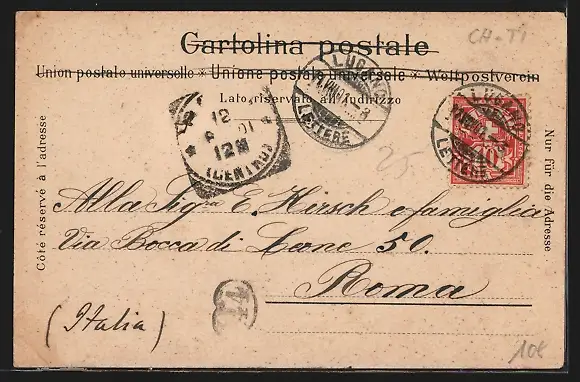 CH-TI
Cartolina postale
Union postale universelle * Unione postale universale * Weltpostverein
Lato riservato all'indirizzo
LUGANO
LETTERE
12
01
12M
(CENTRO)
LUGANO
LETTERE
10
25.
Côté réservé à l'adresse
Nur für die Adresse
Alla Sigra E. Hirsch e famiglia
Via Bocca di Leone 50.
Roma
(Italia)
108